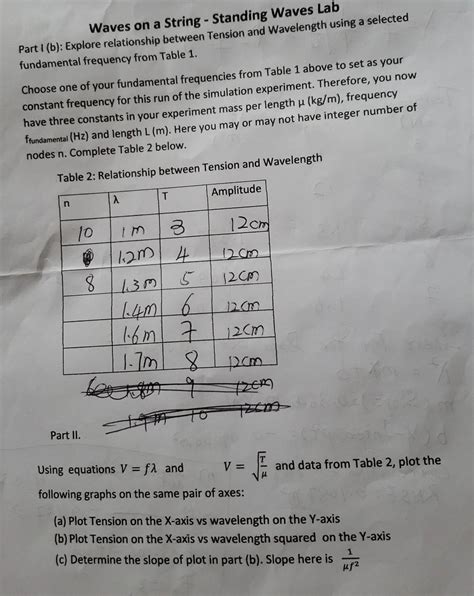 Waves on a String - Standing Waves Lab
Part I (b): Explore relationship between Tension and Wavelength using a selected
fundamental frequency from Table 1.
Choose one of your fundamental frequencies from Table 1 above to set as your
constant frequency for this run of the simulation experiment. Therefore, you now
have three constants in your experiment mass per length μ (kg/m), frequency
ffundamental (Hz) and length L (m). Here you may or may not have integer number of
nodes n. Complete Table 2 below.
Table 2: Relationship between Tension and Wavelength
n λ T Amplitude
10 1 m 3 12cm
1.2m 4 12cm
8 1.3m 5 12cm
1.4m 6 12cm
1.6m 7 12cm
1.7m 8 12cm
9 12cm
1.9m 10 12cm
Part II.
Using equations V = fλ and V = √T/μ and data from Table 2, plot the
following graphs on the same pair of axes:
(a) Plot Tension on the X-axis vs wavelength on the Y-axis
(b) Plot Tension on the X-axis vs wavelength squared on the Y-axis
(c) Determine the slope of plot in part (b). Slope here is 1/μf²